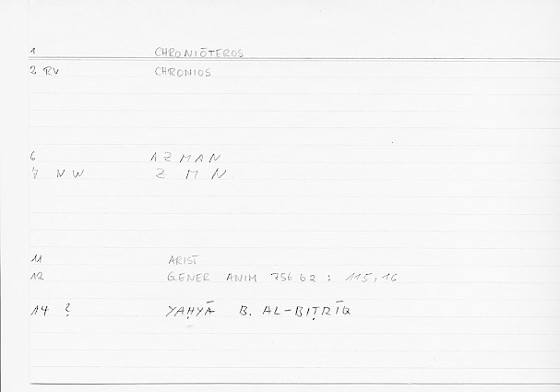 1 CHRONIŌTEROS
2 RV CHRONIOS
6 AZMAN
7 NW Z M N
11 ARIST
12 GENER ANIM 756 b2 : 115,16
14 ? YAḤYĀ B. AL-BIṬRĪQ